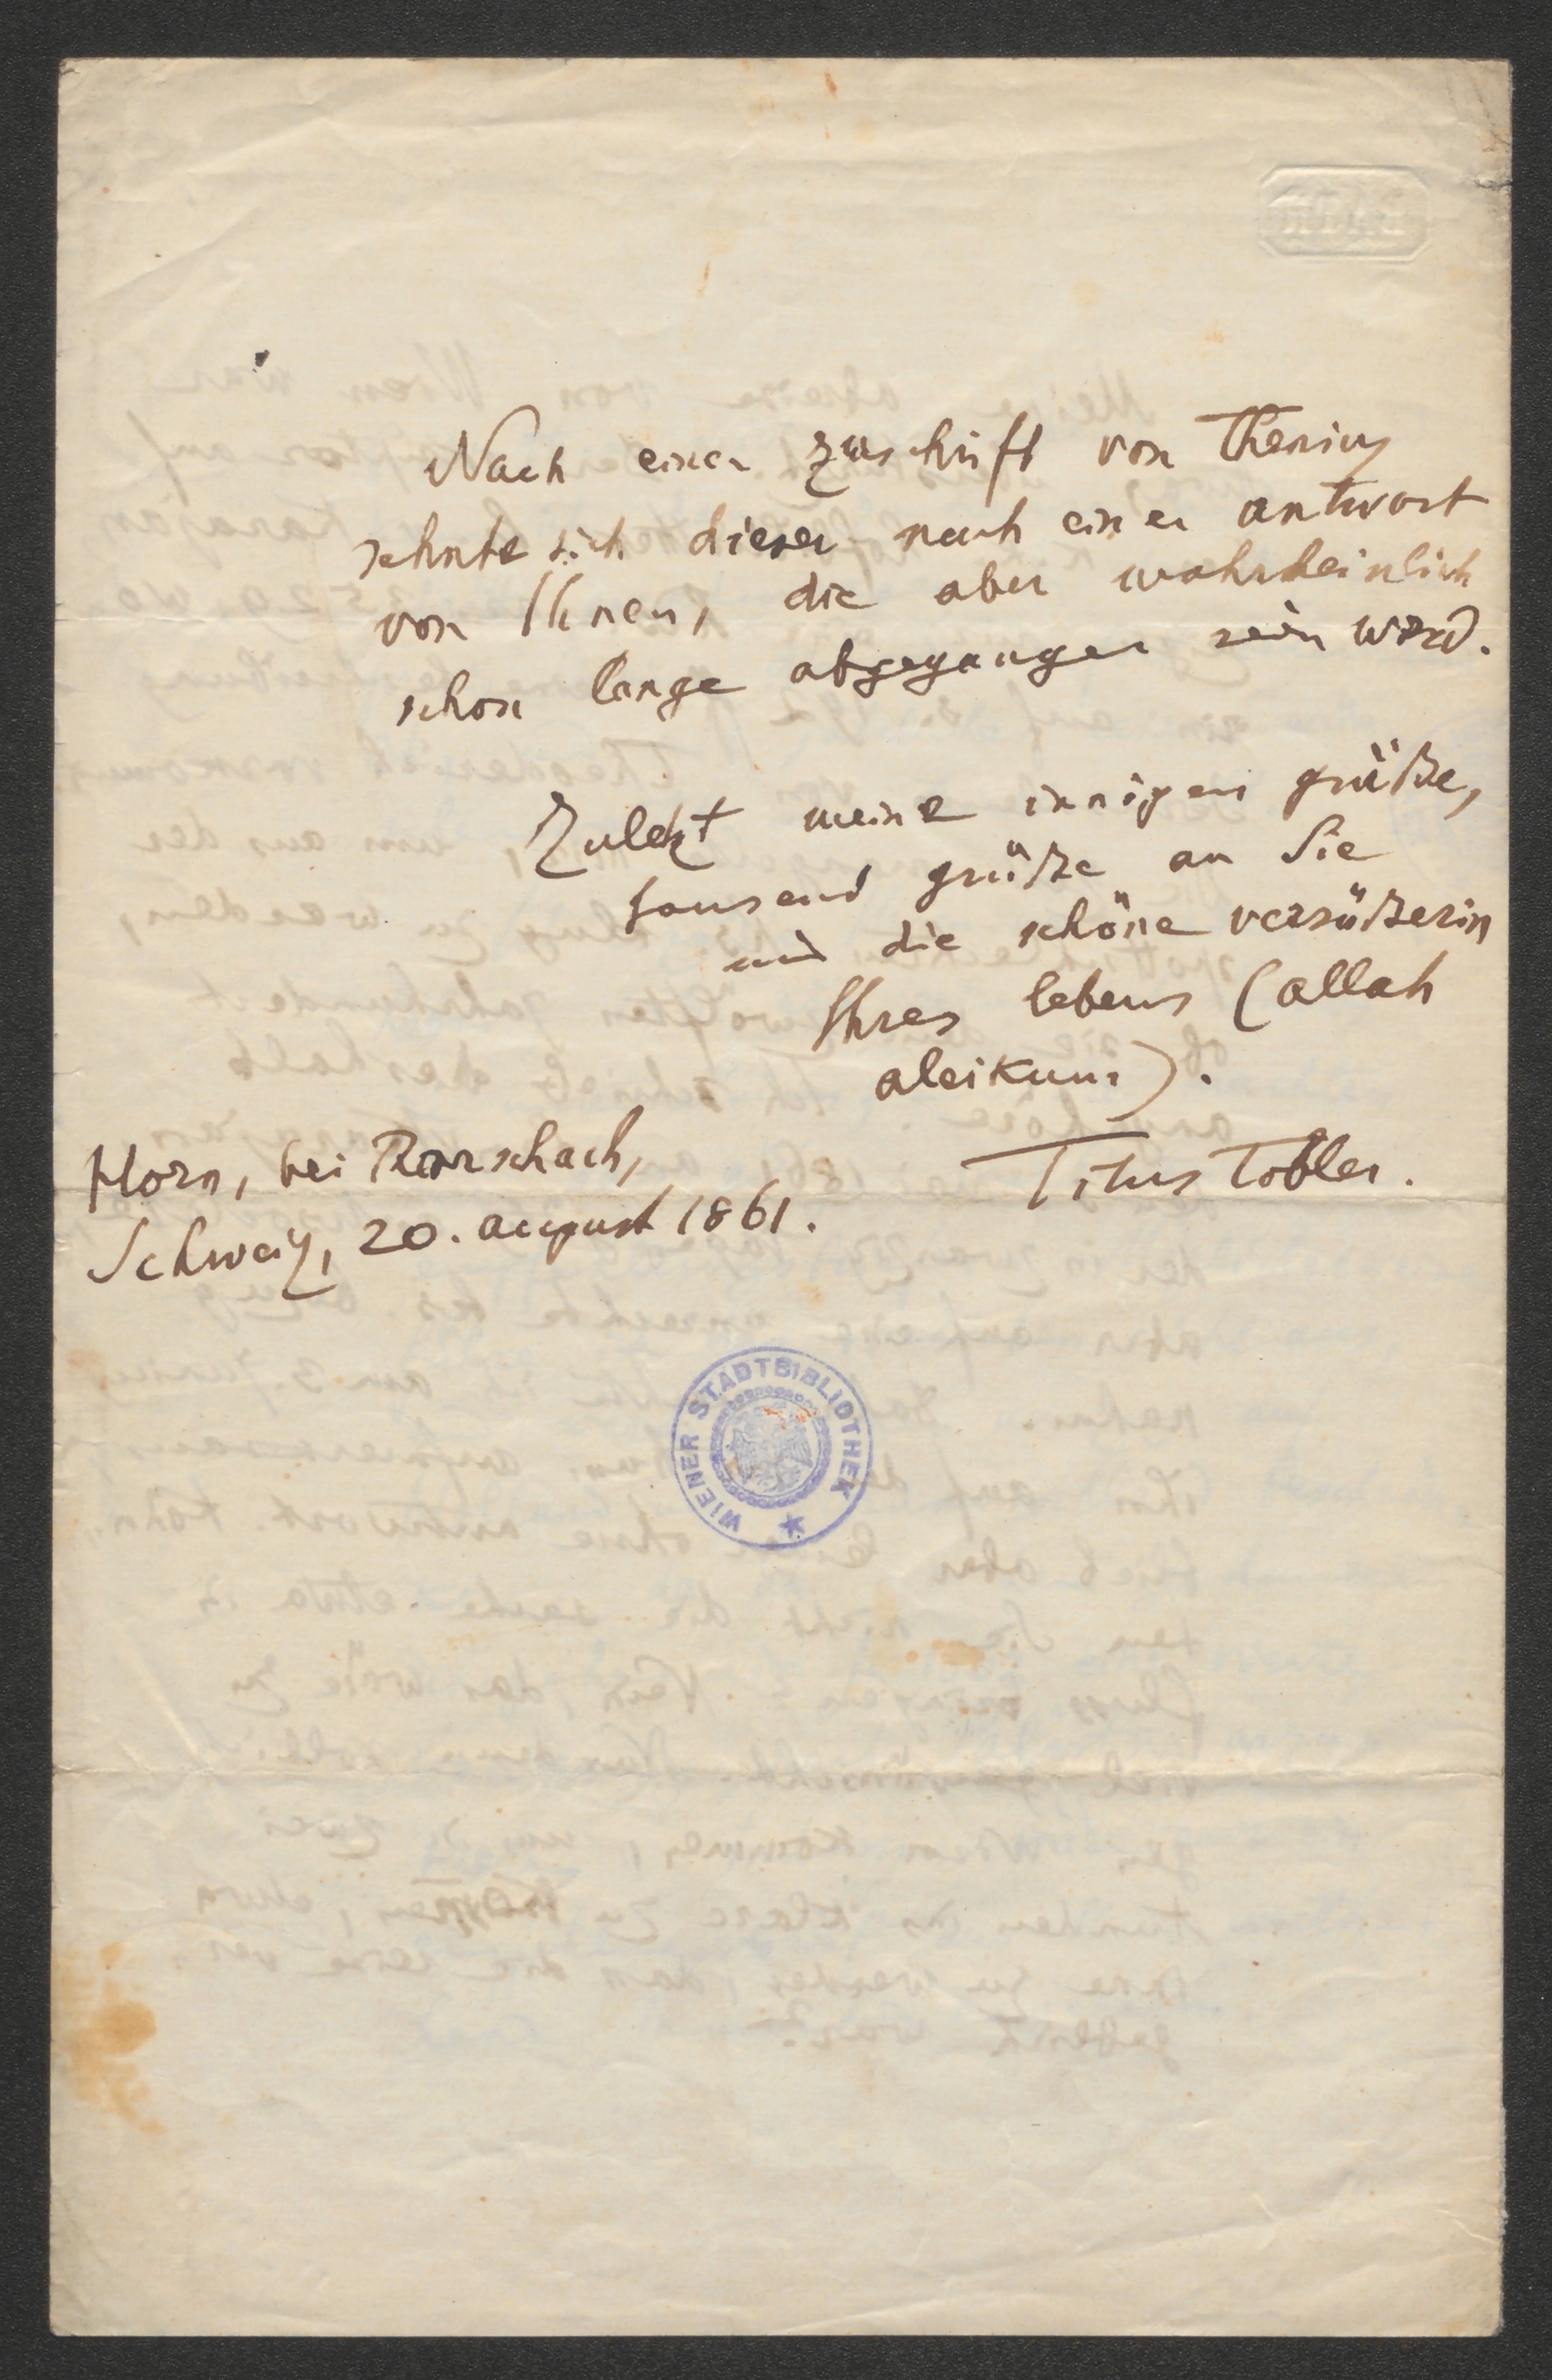 Nach einer zuschrift von Thenius
sehnte sich dieser nach einer antwort
von Ihnen, die aber wahrscheinlich
schon lange abgegangen sein wird.
Zuletzt meine innigen grüße,
tausend grüße an Sie
und die schöne versüßerin
Ihres lebens (allah
aleikum).
Titus Tobler.
Horn, bei Rorschach,
Schweiz, 20. august 1861.
WIENER STADTBIBLIOTHEK